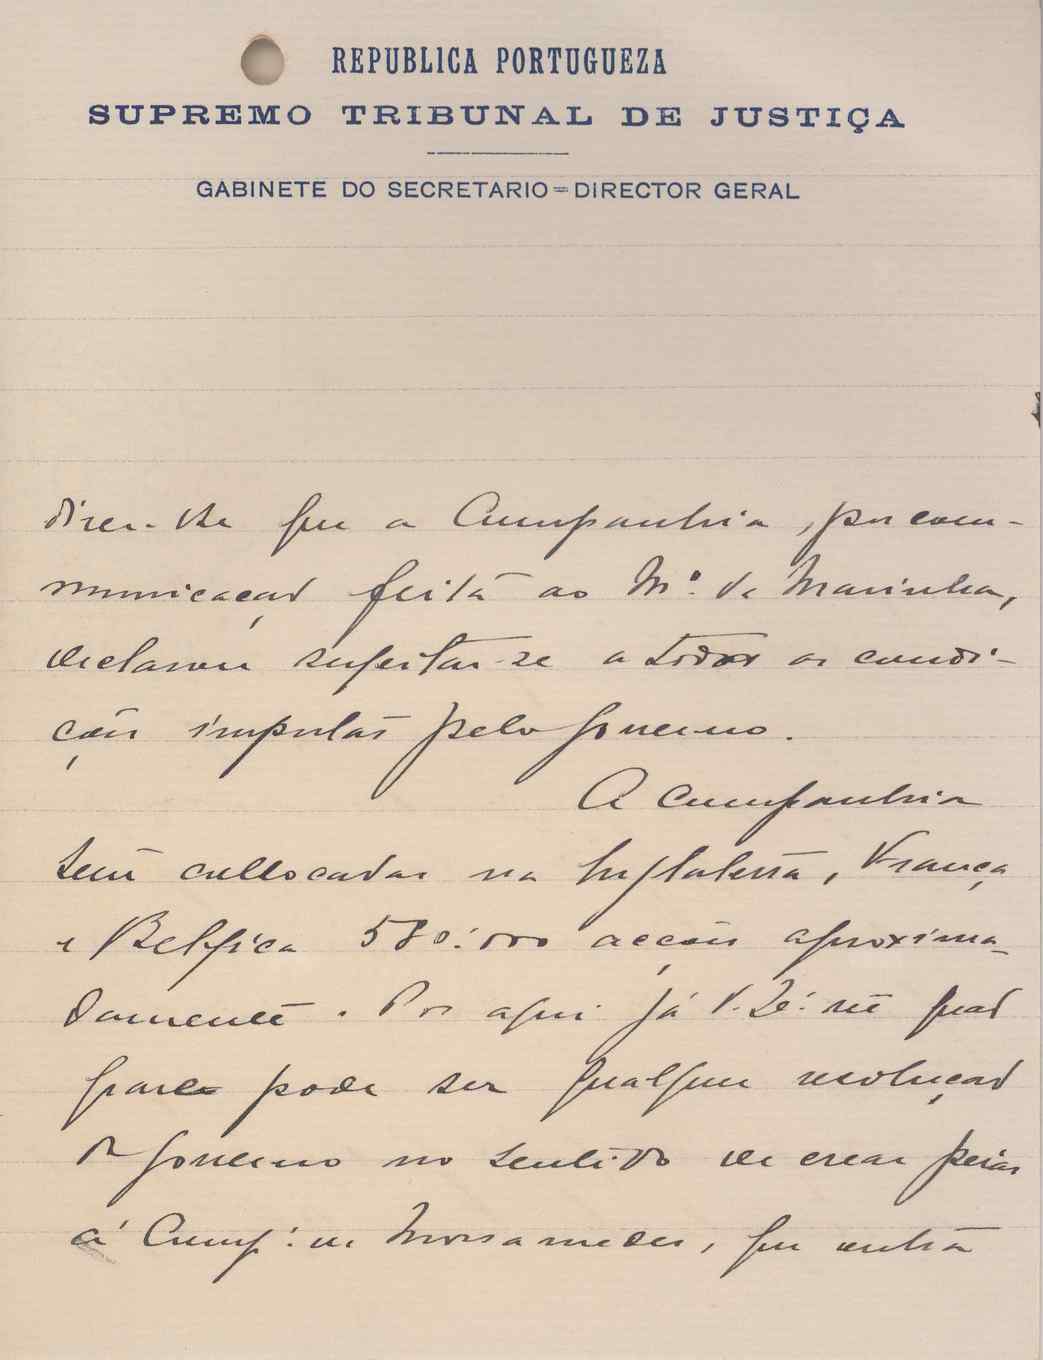 REPUBLICA PORTUGUEZA
SUPREMO TRIBUNAL DE JUSTIÇA
GABINETE DO SECRETARIO=DIRECTOR GERAL
dizer-lhe que a Companhia, por com-
municação feita ao M.º da Marinha,
declarou sugeitar-se a todas as condi-
ções impostas pelo Governo.
A Companhia
tem collocadas na Inglaterra, França
e Belgica 580:000 acções aproxima-
damente. Por aqui já V. Ex.ª vê quão
grave pode ser qualquer resolução
do Governo no sentido de crear peias
á Comp.ª de Mossamedes, que outra